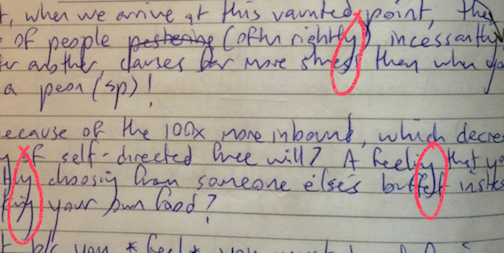 t, when we arrive at this vaunted point, the
of people pestering (often rightly) incessantly
another causes far more stress than when yo
a peon (sp)!
ecause of the 100x more inbound, which decre
y of self-directed free will? A feeling that yo
tly choosing from someone else's buffet inste
your own food?
t b/c you *feel* you